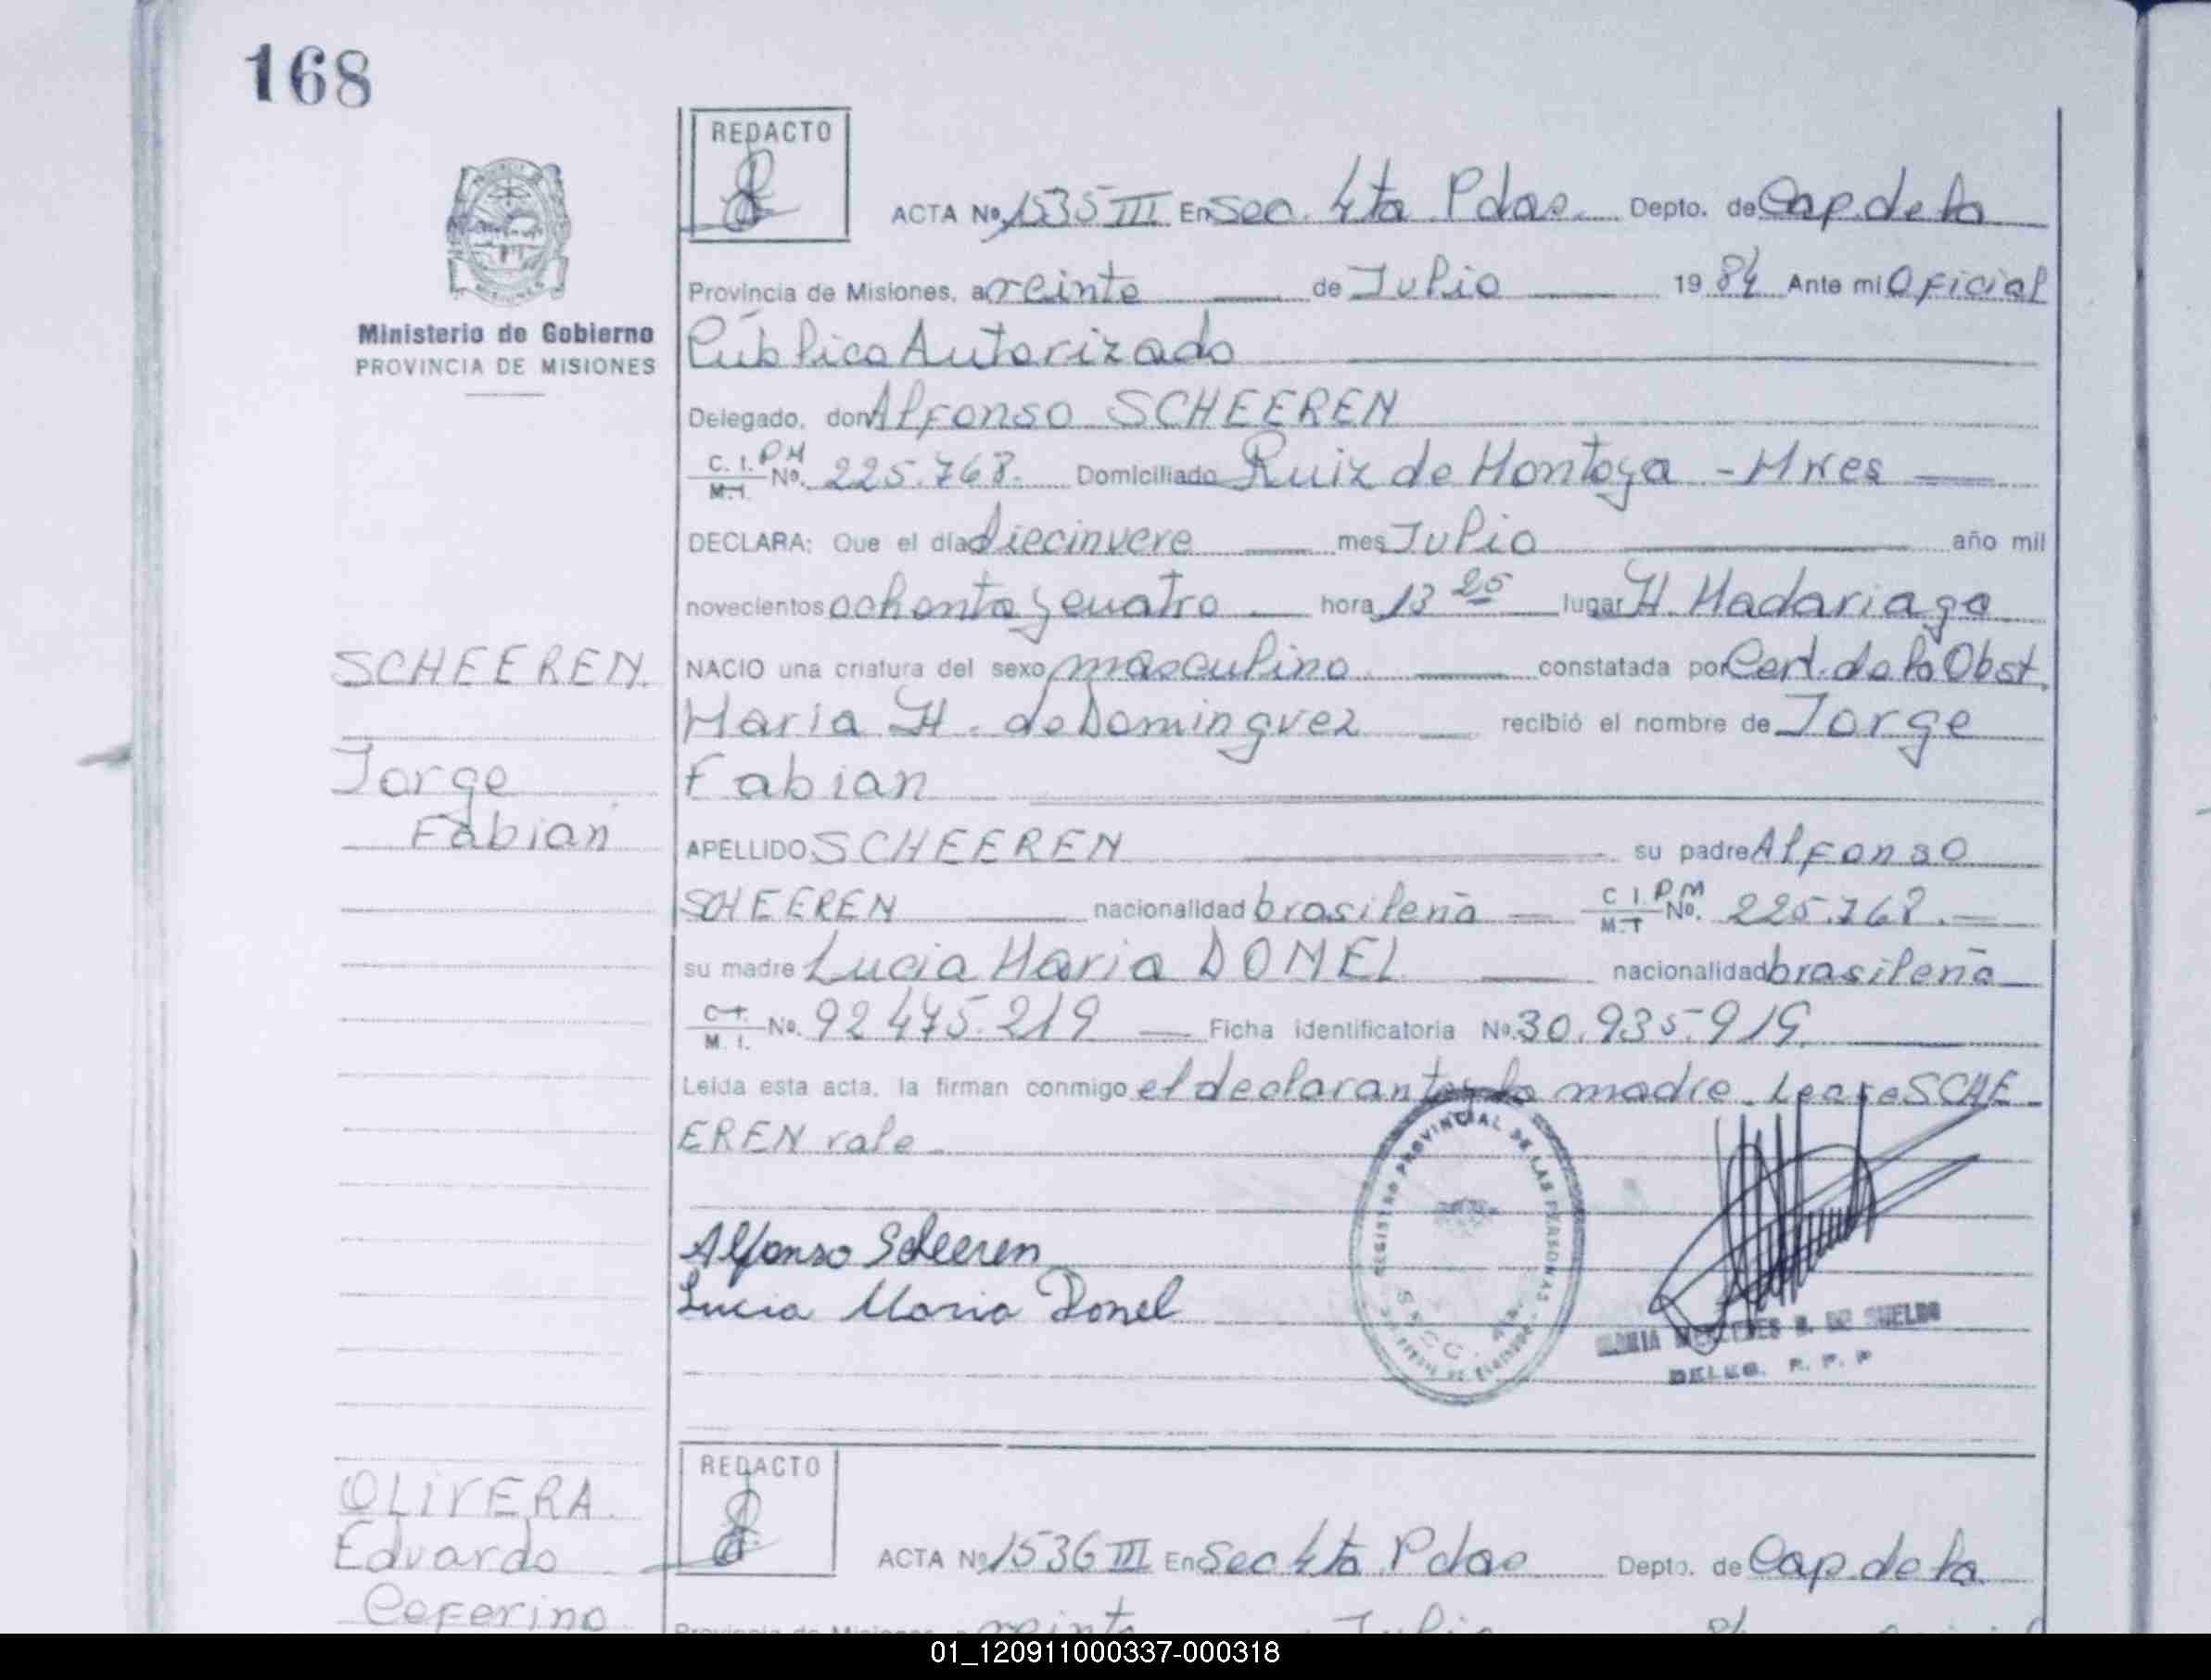 168
REDACTO
ACTA Nº 1535 III En Sec. 4ta Pdas. Depto. de Cap. de la
Ministerio de Gobierno
PROVINCIA DE MISIONES
Provincia de Misiones, a veinte de Julio 1984 Ante mi Oficial
Público Autorizado
Delegado, don Alfonso SCHEEREN
C. I. P M
M. I. Nº. 225.768. Domiciliado Ruiz de Montoya - Mnes
DECLARA: Que el día diecinueve mes Julio año mil
novecientos ochenta y cuatro hora 13 25 lugar H. Madariaga
SCHEEREN.
NACIO una criatura del sexo masculino constatada por Cert. de la Obst.
Maria H. de Dominguez recibió el nombre de Jorge
Jorge
Fabian
Fabian
APELLIDO SCHEEREN su padre Alfonso
SCHEEREN nacionalidad brasileña C I. P M
M. I Nº. 225.768.
su madre Lucia Maria DONEL nacionalidad brasileña
C. I.
M. I. Nº. 92 475.219 Ficha identificatoria Nº. 30.935.919.
Leída esta acta, la firman conmigo el declarante y la madre. Lease SCHE-
EREN vale.
REGISTRO PROVINCIAL DE LAS PERSONAS
Alfonso Scheeren
Lucia Maria Donel
MARIA MERCEDES
DELEG. R. P. P
REDACTO
OLIVERA.
Eduardo
Ceferino
ACTA Nº 1536 III En Sec 4ta Pdas Depto. de Cap. de la
Provincia de Misiones, a veinte Julio 84
01_120911000337-000318